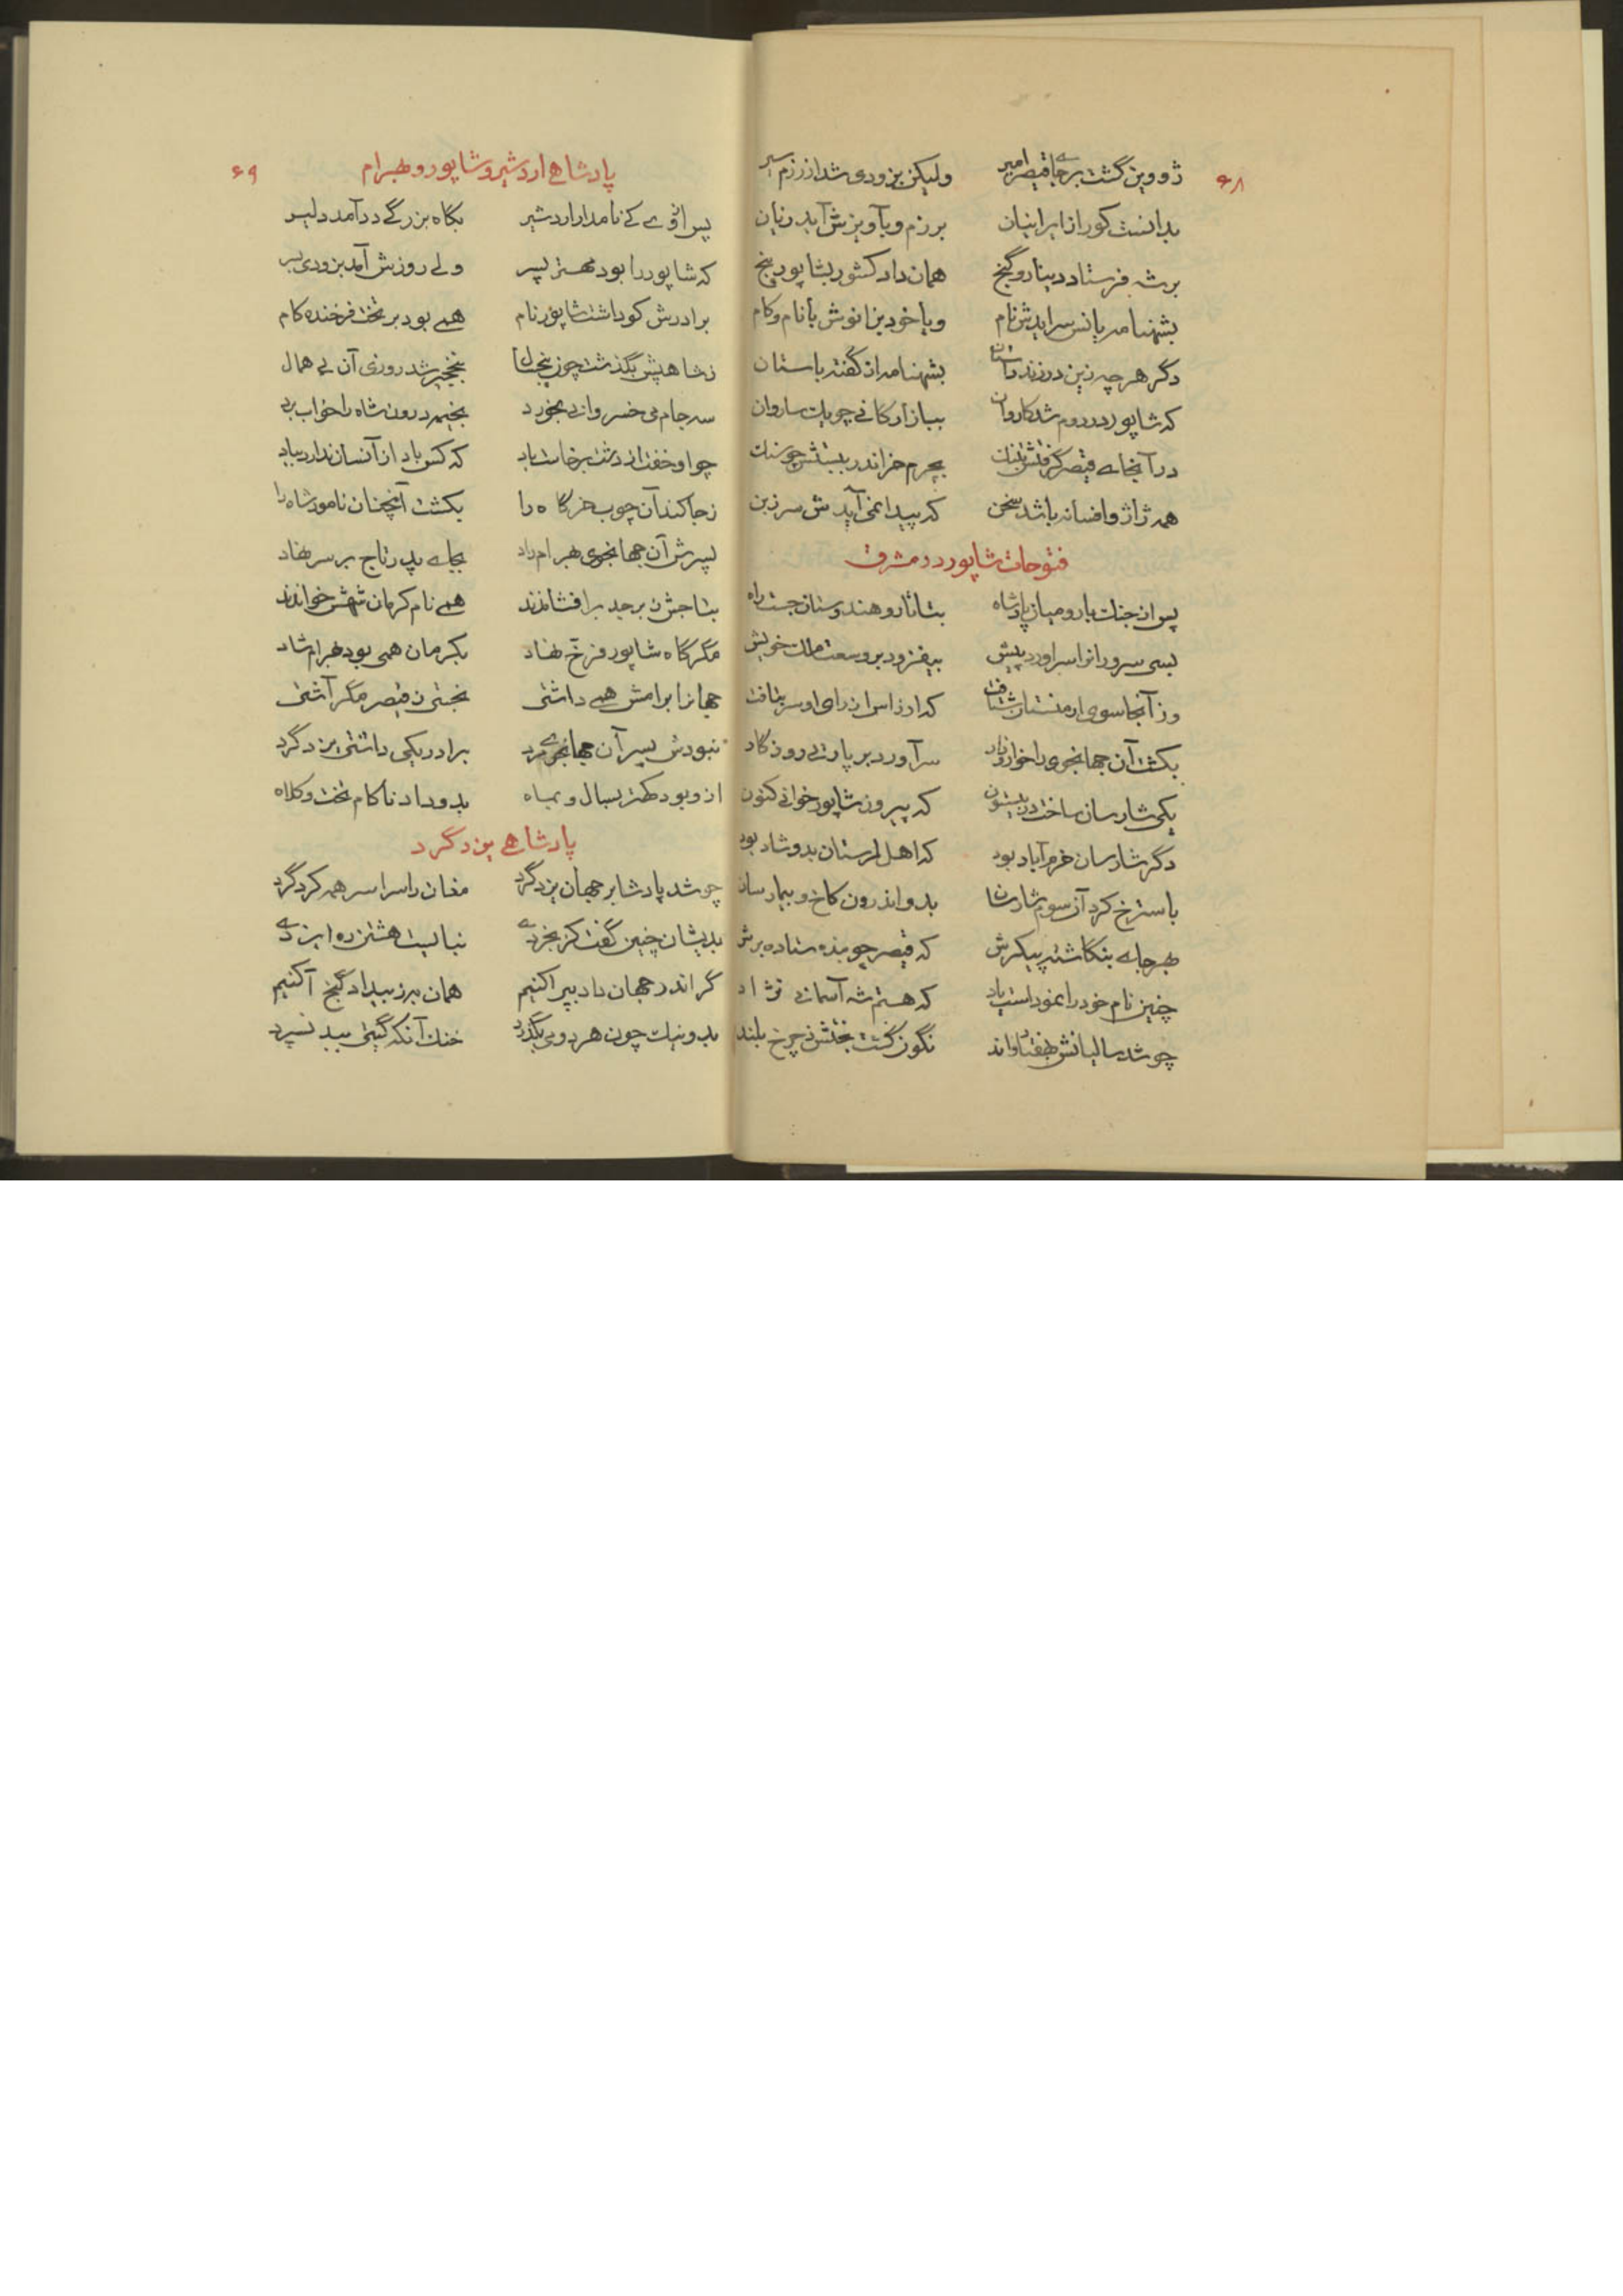 ۶۸
ژووین گشت بر جای قیصر امیر ولیکن بزودی شد از رزم سیر
بدانست کورا از ایرانیان برزم و بآویزش آید زیان
بر شه فرستاد دینار و گنج همان داد کشور بشاپور پنج
بشهنامه یانس سرایدش نام ویا خود بزانوش با نام و کام
دگر هر چه زین در زند داستان بشهنامه از گفته باستان
که شاپور در روم شد کاروان ببازارگانی چو یک ساروان
در آنجای قیصر گرفتش بچرم خر اندر
همه ژاژ و افسانه باشد سخن که پیدا نمی‌آیدش سر زبن
فتوحات شاپور در مشرق
پس از جنگ با رومیان پادشاه بتاتار و هندوستان جست راه
بسی سرورانرا سر آورد پیش بیفزود بر وسعت ملک خویش
وز آنجا سوی ارمنستان شتافت که ارزاس از رای او سر بتافت
بکشت آن جهانجوی را خوار و زار سر آورد بر پارتی روزگار
یکی شارسان ساخت که پیروز شاپور خوانی کنون
دگر شارسان خرم‌آباد بود که اهل لرستان بدو شاد بود
باسترخ کرد آن سوم شارسان بدو اندرون کاخ و بیمارسان
بهر جای بنگاشته پیکرش که قیصر چو بنده ستاده برش
چنین نام خود را نموداست یاد که هستم شه آسمانی نژاد
چو شد سالیانش بهفتاد و اند نگون گشت بختش ز چرخ بلند
۶۹
پادشاهی اردشیر و شاپور و بهرام
پس از وی کی نامدار اردشیر بگاه بزرگی درآمد دلیر
که شاپور را بود مهتر پسر ولی روزش آمد بزودی بسر
برادرش کو داشت شاپور نام همی بود بر تخت فرخنده کام
ز شاهیش بگذشت چون پنج سال بنخجیر شد روزی آن بی همال
سه جام می خسروانی بخورد بخیمه درون شاه را خواب برد
چو او خفت از دشت برخاست باد که کس باد از آنسان ندارد بیاد
ز جا کند آن چوب خرگاه را بکشت آنچنان نامور شاه را
پسرش آن جهانجوی بهرام راد بجای پدر تاج بر سر نهاد
بتاجش زبرجد برافشاندند همی نام کرمان شهش خواندند
مگر گاه شاپور فرخ نهاد بکرمان همی بود بهرام شاد
جهانرا برامش همی داشتی نجستی ز قیصر مگر آشتی
نبودش پسر آن جهانجوی مرد برادر یکی داشتی یزدگرد
ازو بود کهتر بسال و بماه بدو داد ناکام تخت و کلاه
پادشاهی یزدگرد
چو شد پادشا بر جهان یزدگرد مغان را سراسر همه کرد گرد
بدیشان چنین گفت کز بخردی نبایست هشتن ره ایزدی
گر اندر جهان داد بپراکنیم همان به ز بیداد گنج آکنیم
بد و نیک چون هر دو می بگذرد خنک آنکه گیتی ببد نسپرد